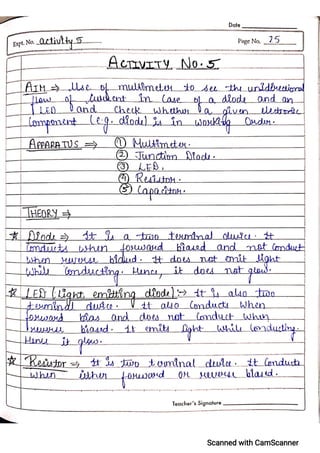 Date
Expt. No. activity 5
Page No. 25
ACTIVITY No. 5
AIM ⇒ Use of multimeter to see the unidirectional
flow of current in case of a diode and an
LED and check whether a given electronic
component (e.g. diode) is in working order.
APPARATUS ⇒ ① Multimeter.
② Junction Diode.
③ LED.
④ Resistor.
⑤ Capacitor.
THEORY ⇒
★ Diode ⇒ It is a two terminal device. It
conducts when forward biased and not conduct
when reverse biased. It does not emit light
while conducting. Hence, it does not glow.
★ LED (Light emitting diode) :→ It is also two
terminal device. It also conducts when
forward bias and does not conduct when
reverse biased. It emits light while conducting.
Hence it glow.
★ Resistor ⇒ It is two terminal device. It conducts
when either forward or reverse biased.
Teacher's Signature
Scanned with CamScanner